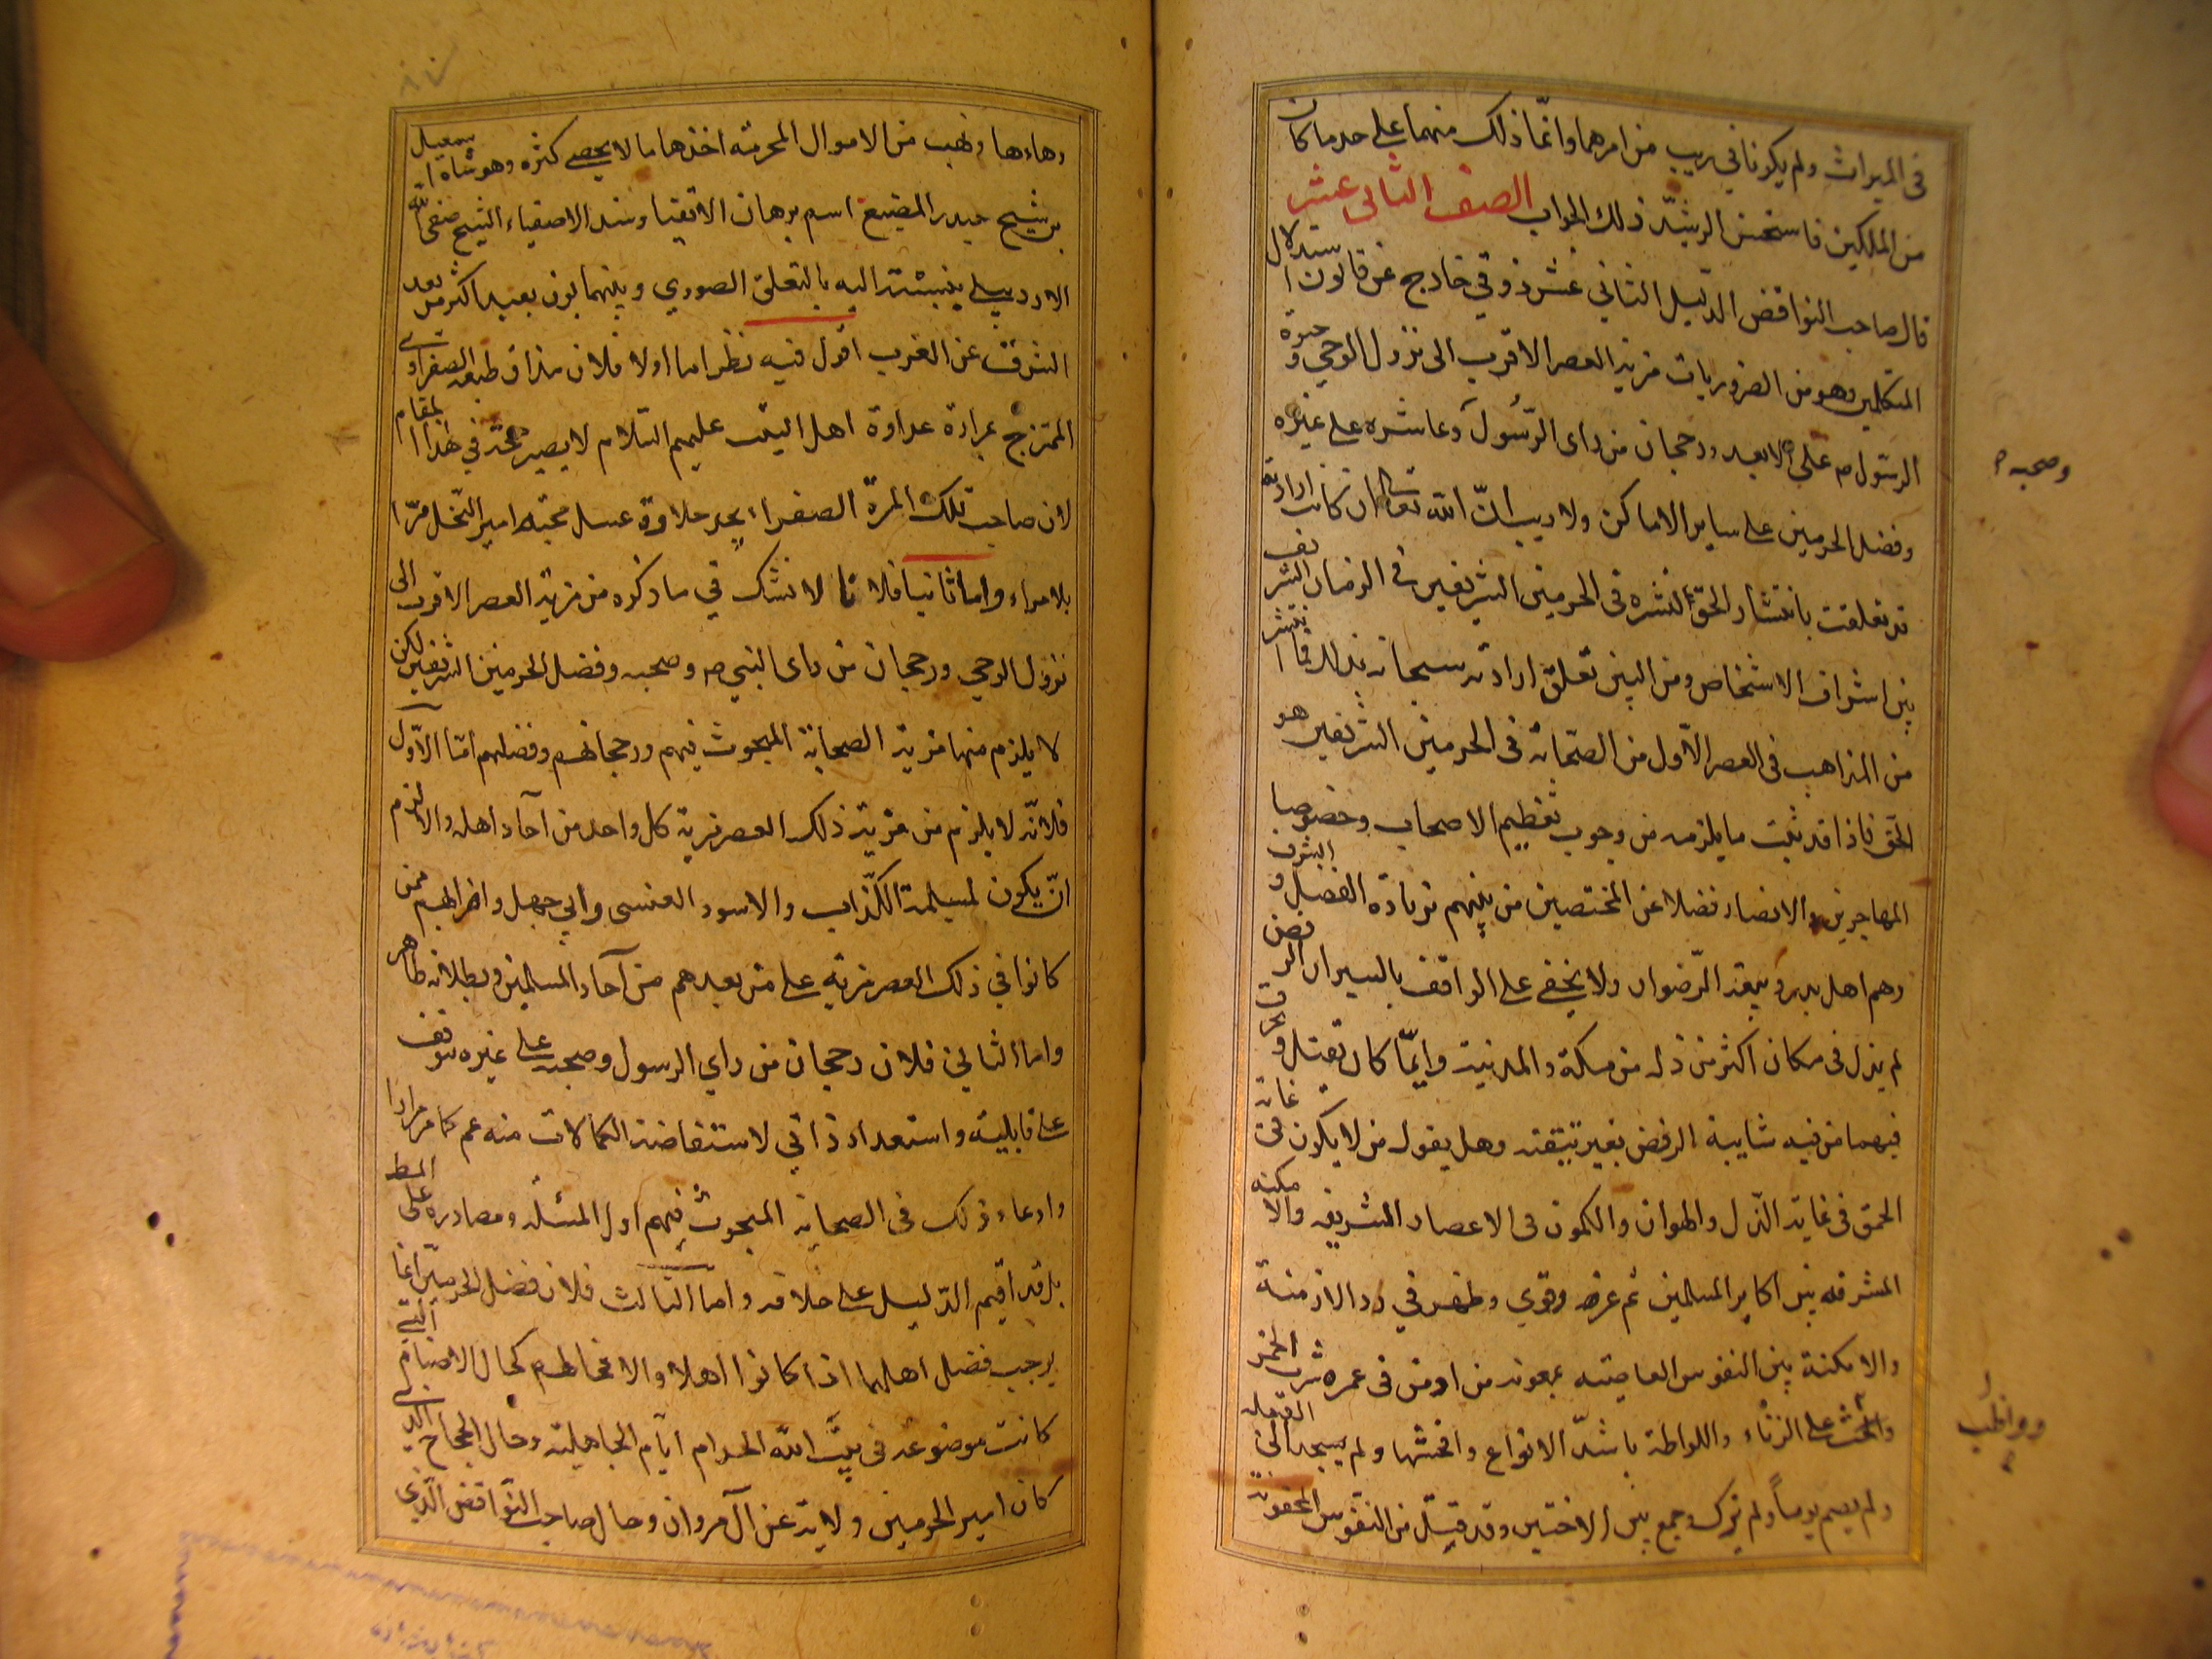 فى الميراث ولم يكونا في ريب من امرهما وانّما ذلك منهما على حد ما كان
من الملكين فاستحسن الرشيد ذلك الجواب الصنف الثانى عشر
قال صاحب النواقض الدليل الثاني عشر ذوقي خارج عن قانون استدلال
المتكلمين وهو من الضروريات مزية العصر الاقرب الى نزول الوحي و حيوة
الرسول ص على الابعد ورجحان من راى الرّسول وعاشره على غيره
وصحبه
وفضل الحرمين على ساير الاماكن ولا ريب انّ الله تعالى ان كانت ارادته
قد تعلقت بانتشار الحقّ لنشره فى الحرمين الشريفين فى الزمان الشريف
بين اشراف الاشخاص ومن البين تعلق ارادته سبحانه بذلك فما انتشر
من المذاهب فى العصر الاّول من الصّحابة فى الحرمين الشريفين هو
الحق فاذا قد ثبت ما يلزمه من وجوب تعظيم الاصحاب وخصوصا
المهاجرين والانصار فضلا عن المختصين من بينهم بزيادة الفضل و الشرف
وهم اهل بدر وبيعة الرّضوان ولا يخفى على الواقف بالسير ان الرفض
لم يذل فى مكان اكثر من ذله من مكة والمدينة وايمّا كان يقتل و يحرق
فيهما من فيه شايبة الرفض بغير تيقنه وهل يقول من لا يكون فى غاية
الحمق فى غاية الذل والهوان والكمون فى الاعصار الشريفه والامكنه
المشرفه بين اكابر المسلمين ثم عز وقوي وظهر في ارد الازمنة
والامكنة بين النفوس العاصيته بمعونه من ادمن فى عمره شرب الخمر
والحث على الزناء واللواطة باشدّ الانواع وافحشها ولم يسجد الى القبله
وواظب
ولم يصم يوماً ولم يترك وجمع بين الاختين وقد قتل من النّفوس المحفونة
دماءها ونهب من الاموال المحرمته اخذها ما لا يحصى كثره وهو شاه اسمعيل
بن شيخ حيدر المضيع اسم برهان الاتقيا وسند الاصفياء الشيخ صفى الله
الاردبيلي بنبشته اليه بالتعلق الصوري وبينهما بون بعيد اكثر من بعد
الشرق عن الغرب اقول فيه نظر اما اولا فلان مذاق طبعه الصفراوى
الممتزج بمرارة عداوة اهل البيت عليهم السّلام لا يصير حجة في هذا المقام
لان صاحب تلك المرة الصفراء يجد حلاوة عسل محبته امير النّخل مرّا
بلا مراء واما ثانيا فلانا لا نشك في ما ذكره من مزية العصر الاقرب الى
نزول الوحي ورجحان من راى النبي ص وصحبه وفضل الحرمين الشريفين لكن
لا يلزم منها مزية الصحابة المبحوث فيهم ورجحانهم وفضلهم امّا الاّول
فلانّه لا يلزم من مزية ذلك العصر مزية كل واحد من آحاد اهله والا لزم
انّ يكون لمسيلمة الكّذاب والاسود العنسى وابي جهل واضرابهم ممن
كانوا في ذلك العصر مزية على من بعدهم من آحاد المسلمين وبطلانه ظاهر
واما الثاني فلان رجحان من راي الرسول وصحبه على غيره موقوف
على قابلية واستعداد ذاتي لاستفاضة الكمالات منه عم كما مر مرارا
وادعاء ذلك فى الصحابه المبحوث فيهم اول المسئله ومصادره على المط
بل قد اقيم الدّليل على خلافه واما الثالث فلان فضل الحرميّن انما
يوجب فضل اهلهما اذا كانوا اهلا والا فحالهم كحال الاصنام التى
كانت موضوعه فى بيت الله الحرام ايّام الجاهلية وحال الحجاج الذى
كان امير الحرمين ولاية عن آل مروان وحال صاحب النّواقض الّذى